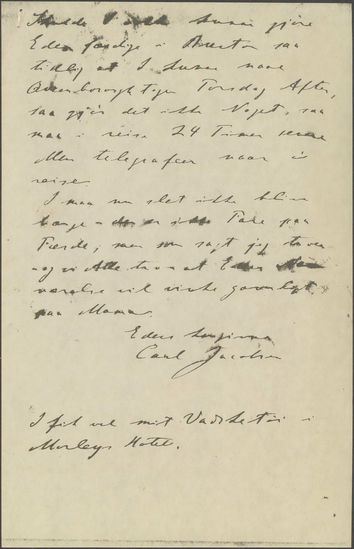 kunne gjøre
Eder færdige i Buxton saa
tidlig at I kunne naae
Aften,
saa gjør det ikke Noget, saa
maa i reise 24 Timer senere
Men telegrafeer naar i
reise.
I maa nu slet ikke blive
bange der er ikke Tale paa
Færde, men som sagt jeg troer
og vi Alle troer at Eders
værelse vil virke gavnligt
paa Mama.
Eders hengivne
Carl Jacobsen
I fik vel mit Vadsketøi i
Morleys Hotel.